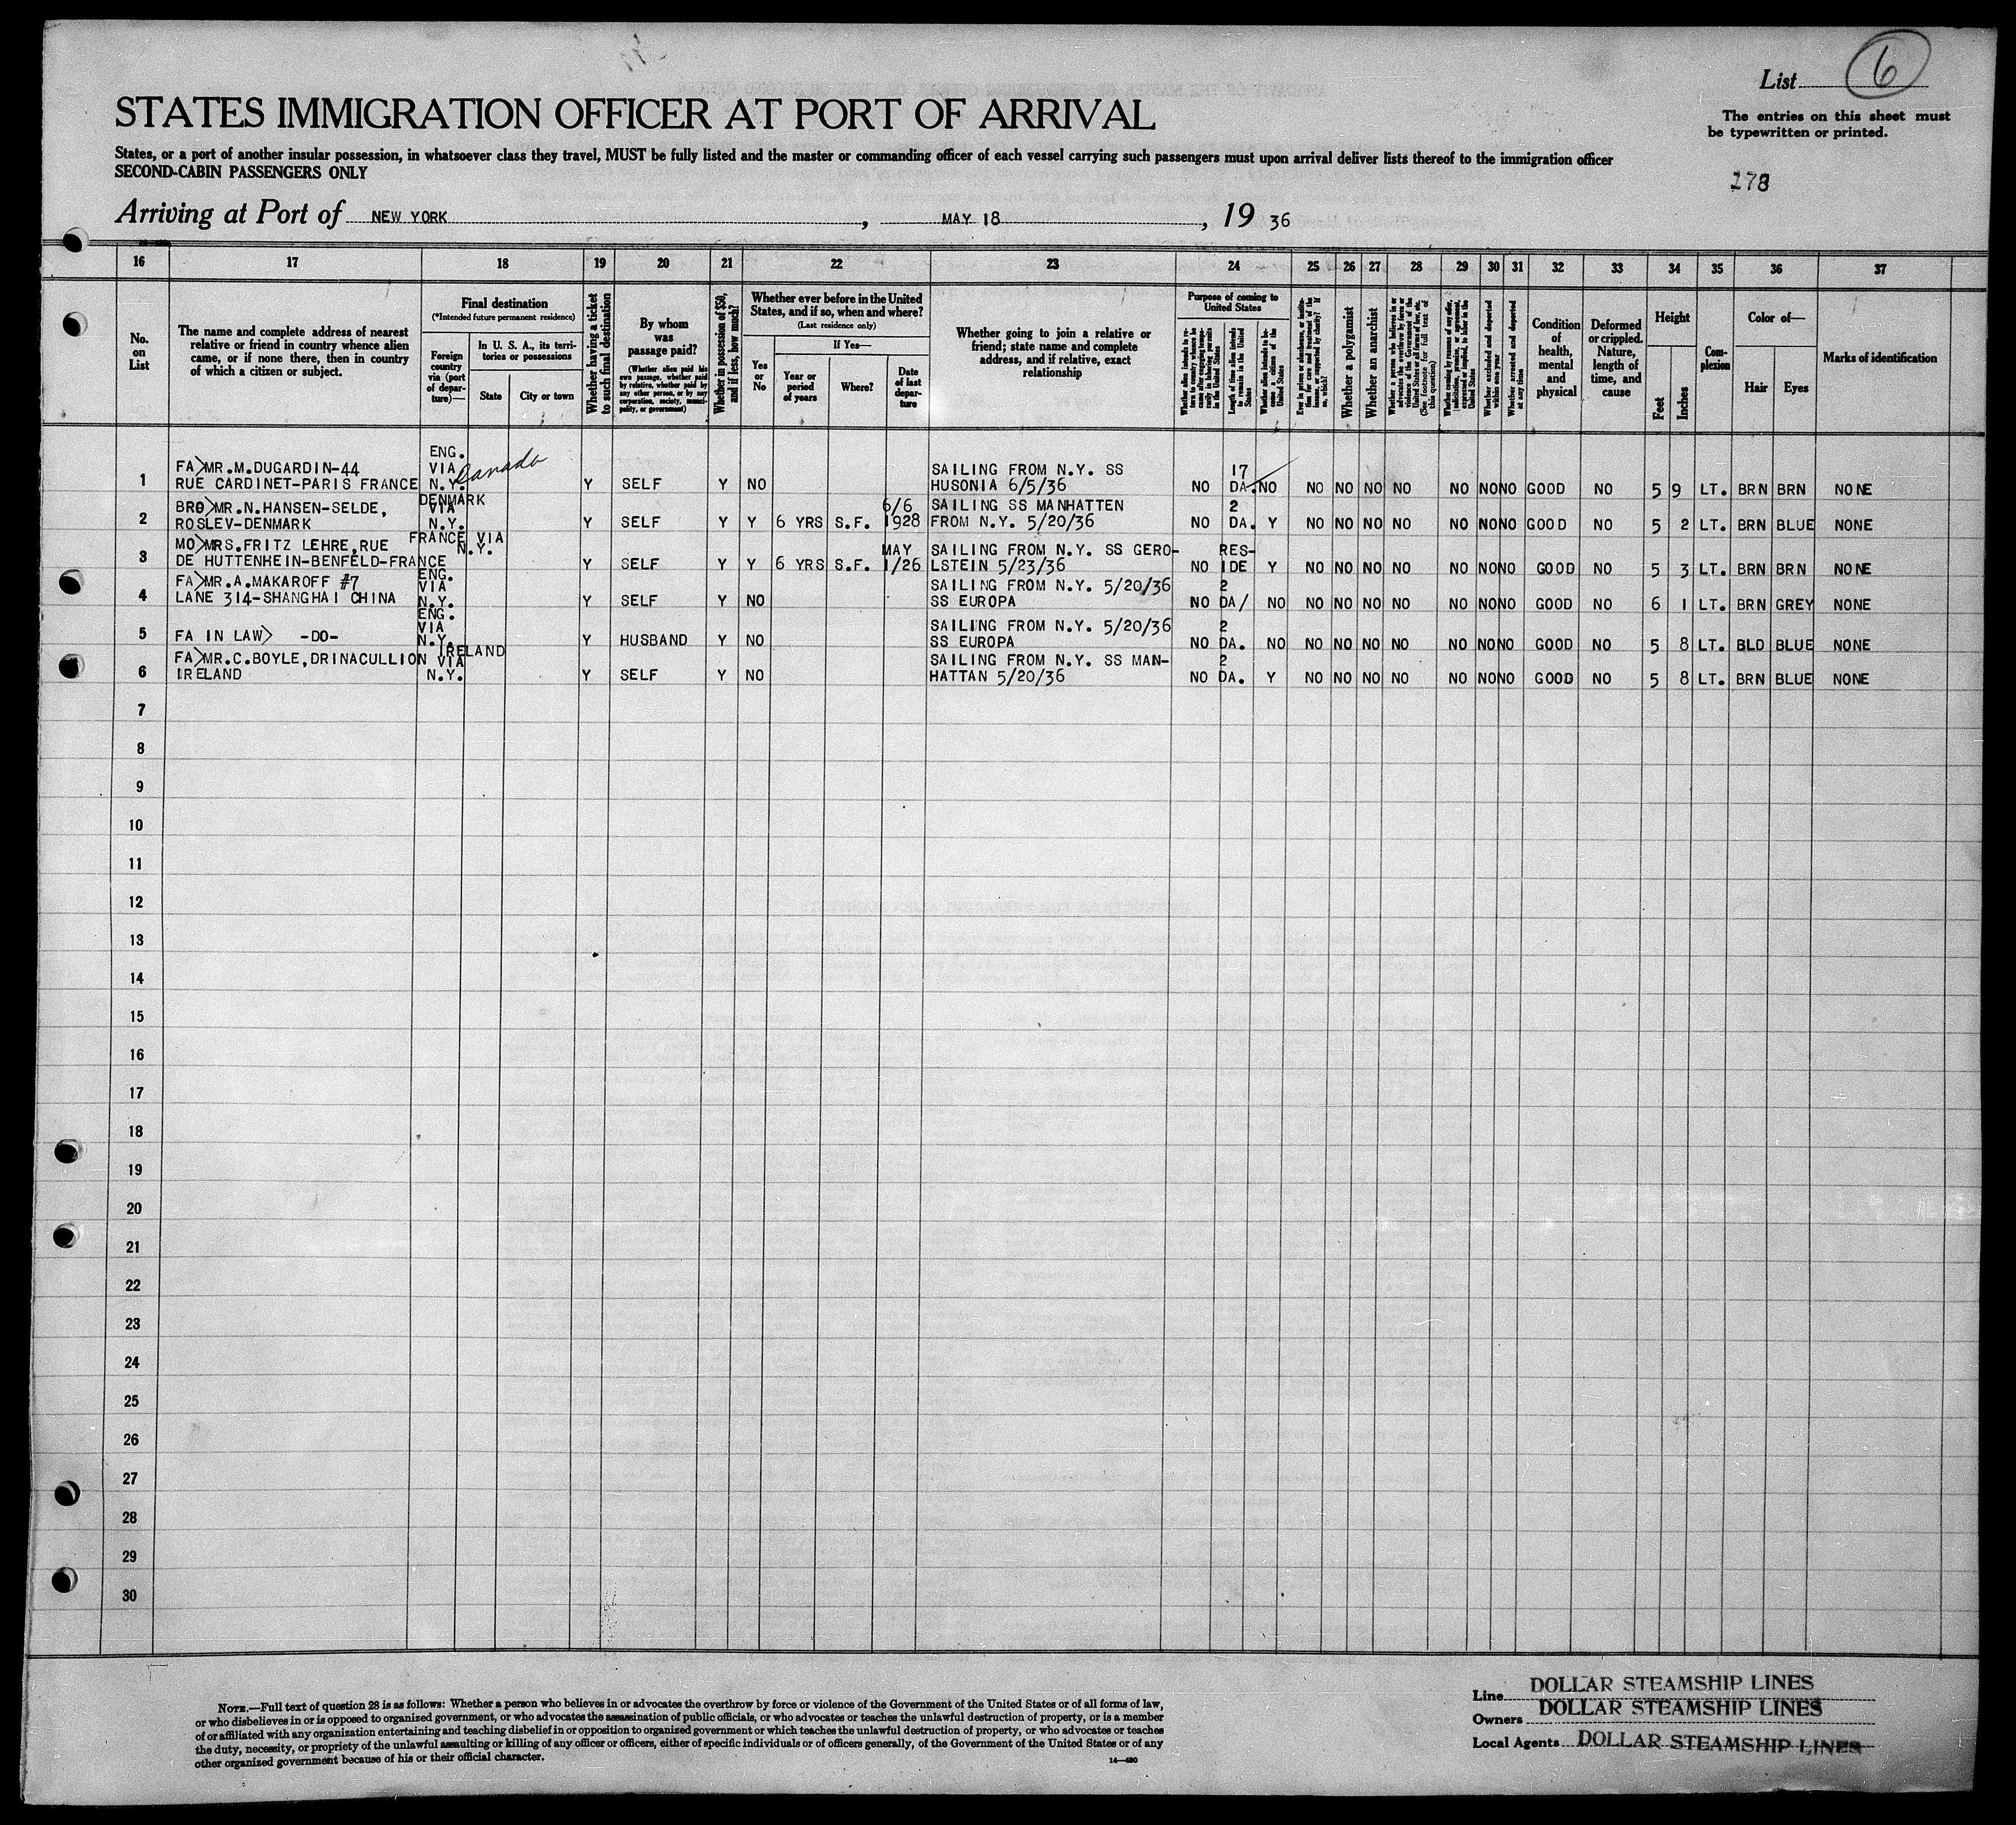 List 6
STATES IMMIGRATION OFFICER AT PORT OF ARRIVAL
The entries on this sheet must
be typewritten or printed.
States, or a port of another insular possession, in whatsoever class they travel, MUST be fully listed and the master or commanding officer of each vessel carrying such passengers must upon arrival deliver lists thereof to the immigration officer
SECOND-CABIN PASSENGERS ONLY
278
Arriving at Port of NEW YORK, MAY 18, 19 36
16 17 18 19 20 21 22 23 24 25 26 27 28 29 30 31 32 33 34 35 36 37
No.
on
List
The name and complete address of nearest
relative or friend in country whence alien
came, or if none there, then in country
of which a citizen or subject.
Final destination
(*Intended future permanent residence)
Foreign
country
via (port
of depar-
ture)—
In U. S. A., its terri-
tories or possessions
State
City or town
Whether having a ticket
to such final destination
By whom
was
passage paid?
(Whether alien paid his
own passage, whether paid
by relative, whether paid by
any other person, or by any
corporation, society, munici-
pality, or government)
Whether in possession of $50,
and if less, how much?
Whether ever before in the United
States, and if so, when and where?
(Last residence only)
Yes
or
No
If Yes—
Year or
period
of years
Where?
Date
of last
depar-
ture
Whether going to join a relative or
friend; state name and complete
address, and if relative, exact
relationship
Purpose of coming to
United States
Length of time alien intends
to remain in the United
States
Whether alien intends to be-
come a citizen of the
United States
Whether a polygamist
Whether an anarchist
Whether excluded and deported
within one year
Whether arrested and deported
at any time
Condition
of
health,
mental
and
physical
Deformed
or crippled.
Nature,
length of
time, and
cause
Height
Feet
Inches
Com-
plexion
Color of—
Hair
Eyes
Marks of identification
ENG.
FA>MR.M.DUGARDIN-44 VIA Canada SAILING FROM N.Y. SS 17
1 RUE CARDINET-PARIS FRANCE N.Y. Y SELF Y NO HUSONIA 6/5/36 NO DA. NO NO NO NO NO NO NO NO GOOD NO 5 9 LT. BRN BRN NONE
DENMARK
BRO>MR.N.HANSEN-SELDE, VIA 6/6 SAILING SS MANHATTEN 2
2 ROSLEV-DENMARK N.Y. Y SELF Y Y 6 YRS S.F. 1928 FROM N.Y. 5/20/36 NO DA. Y NO NO NO NO NO NO NO GOOD NO 5 2 LT. BRN BLUE NONE
FRANCE VIA
MO>MRS.FRITZ LEHRE,RUE N.Y. MAY SAILING FROM N.Y. SS GERO- RES-
3 DE HUTTENHEIN-BENFELD-FRANCE Y SELF Y Y 6 YRS S.F. 1/26 LSTEIN 5/23/36 NO IDE Y NO NO NO NO NO NO NO GOOD NO 5 3 LT. BRN BRN NONE
ENG.
FA>MR.A.MAKAROFF #7 VIA SAILING FROM N.Y. 5/20/36 2
4 LANE 314-SHANGHAI CHINA N.Y. Y SELF Y NO SS EUROPA NO DA/ NO NO NO NO NO NO NO NO GOOD NO 6 1 LT. BRN GREY NONE
ENG.
VIA SAILING FROM N.Y. 5/20/36 2
5 FA IN LAW> -DO- N.Y. Y HUSBAND Y NO SS EUROPA NO DA. NO NO NO NO NO NO NO NO GOOD NO 5 8 LT. BLD BLUE NONE
IRELAND
FA>MR.C.BOYLE,DRINACULLION VIA SAILING FROM N.Y. SS MAN- 2
6 IRELAND N.Y. Y SELF Y NO HATTAN 5/20/36 NO DA. Y NO NO NO NO NO NO NO GOOD NO 5 8 LT. BRN BLUE NONE
7
8
9
10
11
12
13
14
15
16
17
18
19
20
21
22
23
24
25
26
27
28
29
30
NOTE.—Full text of question 28 is as follows: Whether a person who believes in or advocates the overthrow by force or violence of the Government of the United States or of all forms of law,
or who disbelieves in or is opposed to organized government, or who advocates the assassination of public officials, or who advocates or teaches the unlawful destruction of property, or is a member
of or affiliated with any organization entertaining and teaching disbelief in or opposition to organized government or which teaches the unlawful destruction of property, or who advocates or teaches
the duty, necessity, or propriety of the unlawful assaulting or killing of any officer or officers, either of specific individuals or of officers generally, of the Government of the United States or of any
other organized government because of his or their official character.
14—430
Line DOLLAR STEAMSHIP LINES
Owners DOLLAR STEAMSHIP LINES
Local Agents DOLLAR STEAMSHIP LINES